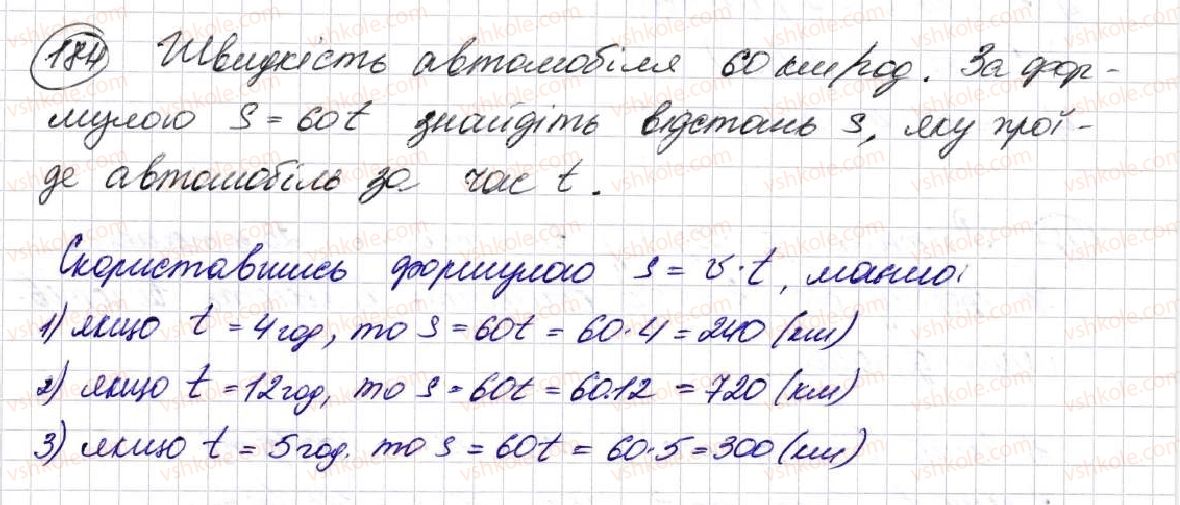 184 Швидкість автомобіля 60 км/год. За фор-
мулою S = 60t знайдіть відстань s, яку прої-
де автомобіль за час t.
Скориставшись формулою s = v·t, маємо:
1) якщо t = 4 год, то s = 60t = 60·4 = 240 (км)
2) якщо t = 12 год, то s = 60t = 60·12 = 720 (км)
3) якщо t = 5 год. то s = 60t = 60·5 = 300 (км)
vshkole.com